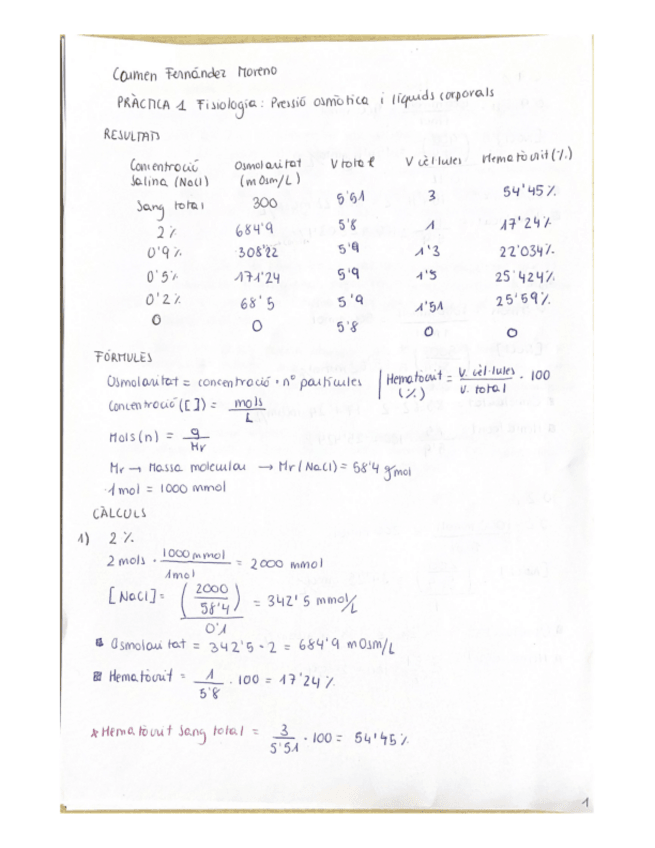 Carmen Fernández Moreno
PRÀCTICA 1 Fisiologia: Pressió osmòtica i líquids corporals
RESULTATS
Concentració Salina (NaCl) Osmolaritat (mOsm/L) V total V cèl·lules Hematòcrit (%)
Sang total 300 5'51 3 54'45%
2% 684'9 5'8 1 17'24%
0'9% 308'22 5'9 1'3 22'034%
0'5% 171'24 5'9 1'5 25'424%
0'2% 68'5 5'9 1'51 25'59%
0 0 5'8 0 0
FÓRMULES
Osmolaritat = concentració · nº partícules | Hematòcrit (%) = V. cèl·lules / V. total · 100
Concentració ([ ]) = mols / L
Mols (n) = g / Mr
Mr → Massa molecular → Mr (NaCl) = 58'4 g/mol
1mol = 1000 mmol
CÀLCULS
1) 2%
2 mols · 1000 mmol / 1mol = 2000 mmol
[NaCl] = (2000 / 58'4) / 0'1 = 342'5 mmol/L
Osmolaritat = 342'5 · 2 = 684'9 mOsm/L
Hematòcrit = 1 / 5'8 · 100 = 17'24%
* Hematòcrit sang total = 3 / 5'51 · 100 = 54'45%
1